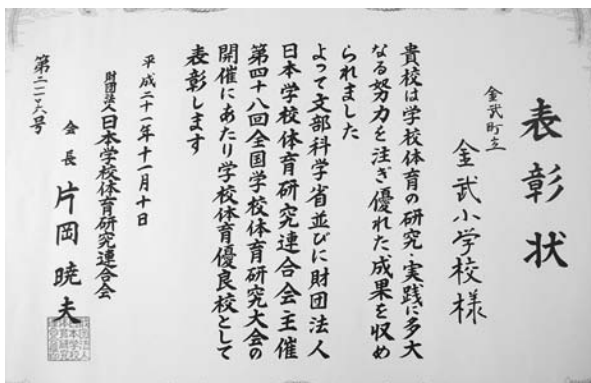 表彰状
金武町立
金武小学校様
貴校は学校体育の研究・実践に多大
なる努力を注ぎ優れた成果を収め
られました
よって文部科学省並びに財団法人
日本学校体育研究連合会主催
第四十八回全国学校体育研究大会の
開催にあたり学校体育優良校として
表彰します
平成二十一年十一月十日
財団法人日本学校体育研究連合会
会長 片岡暁夫